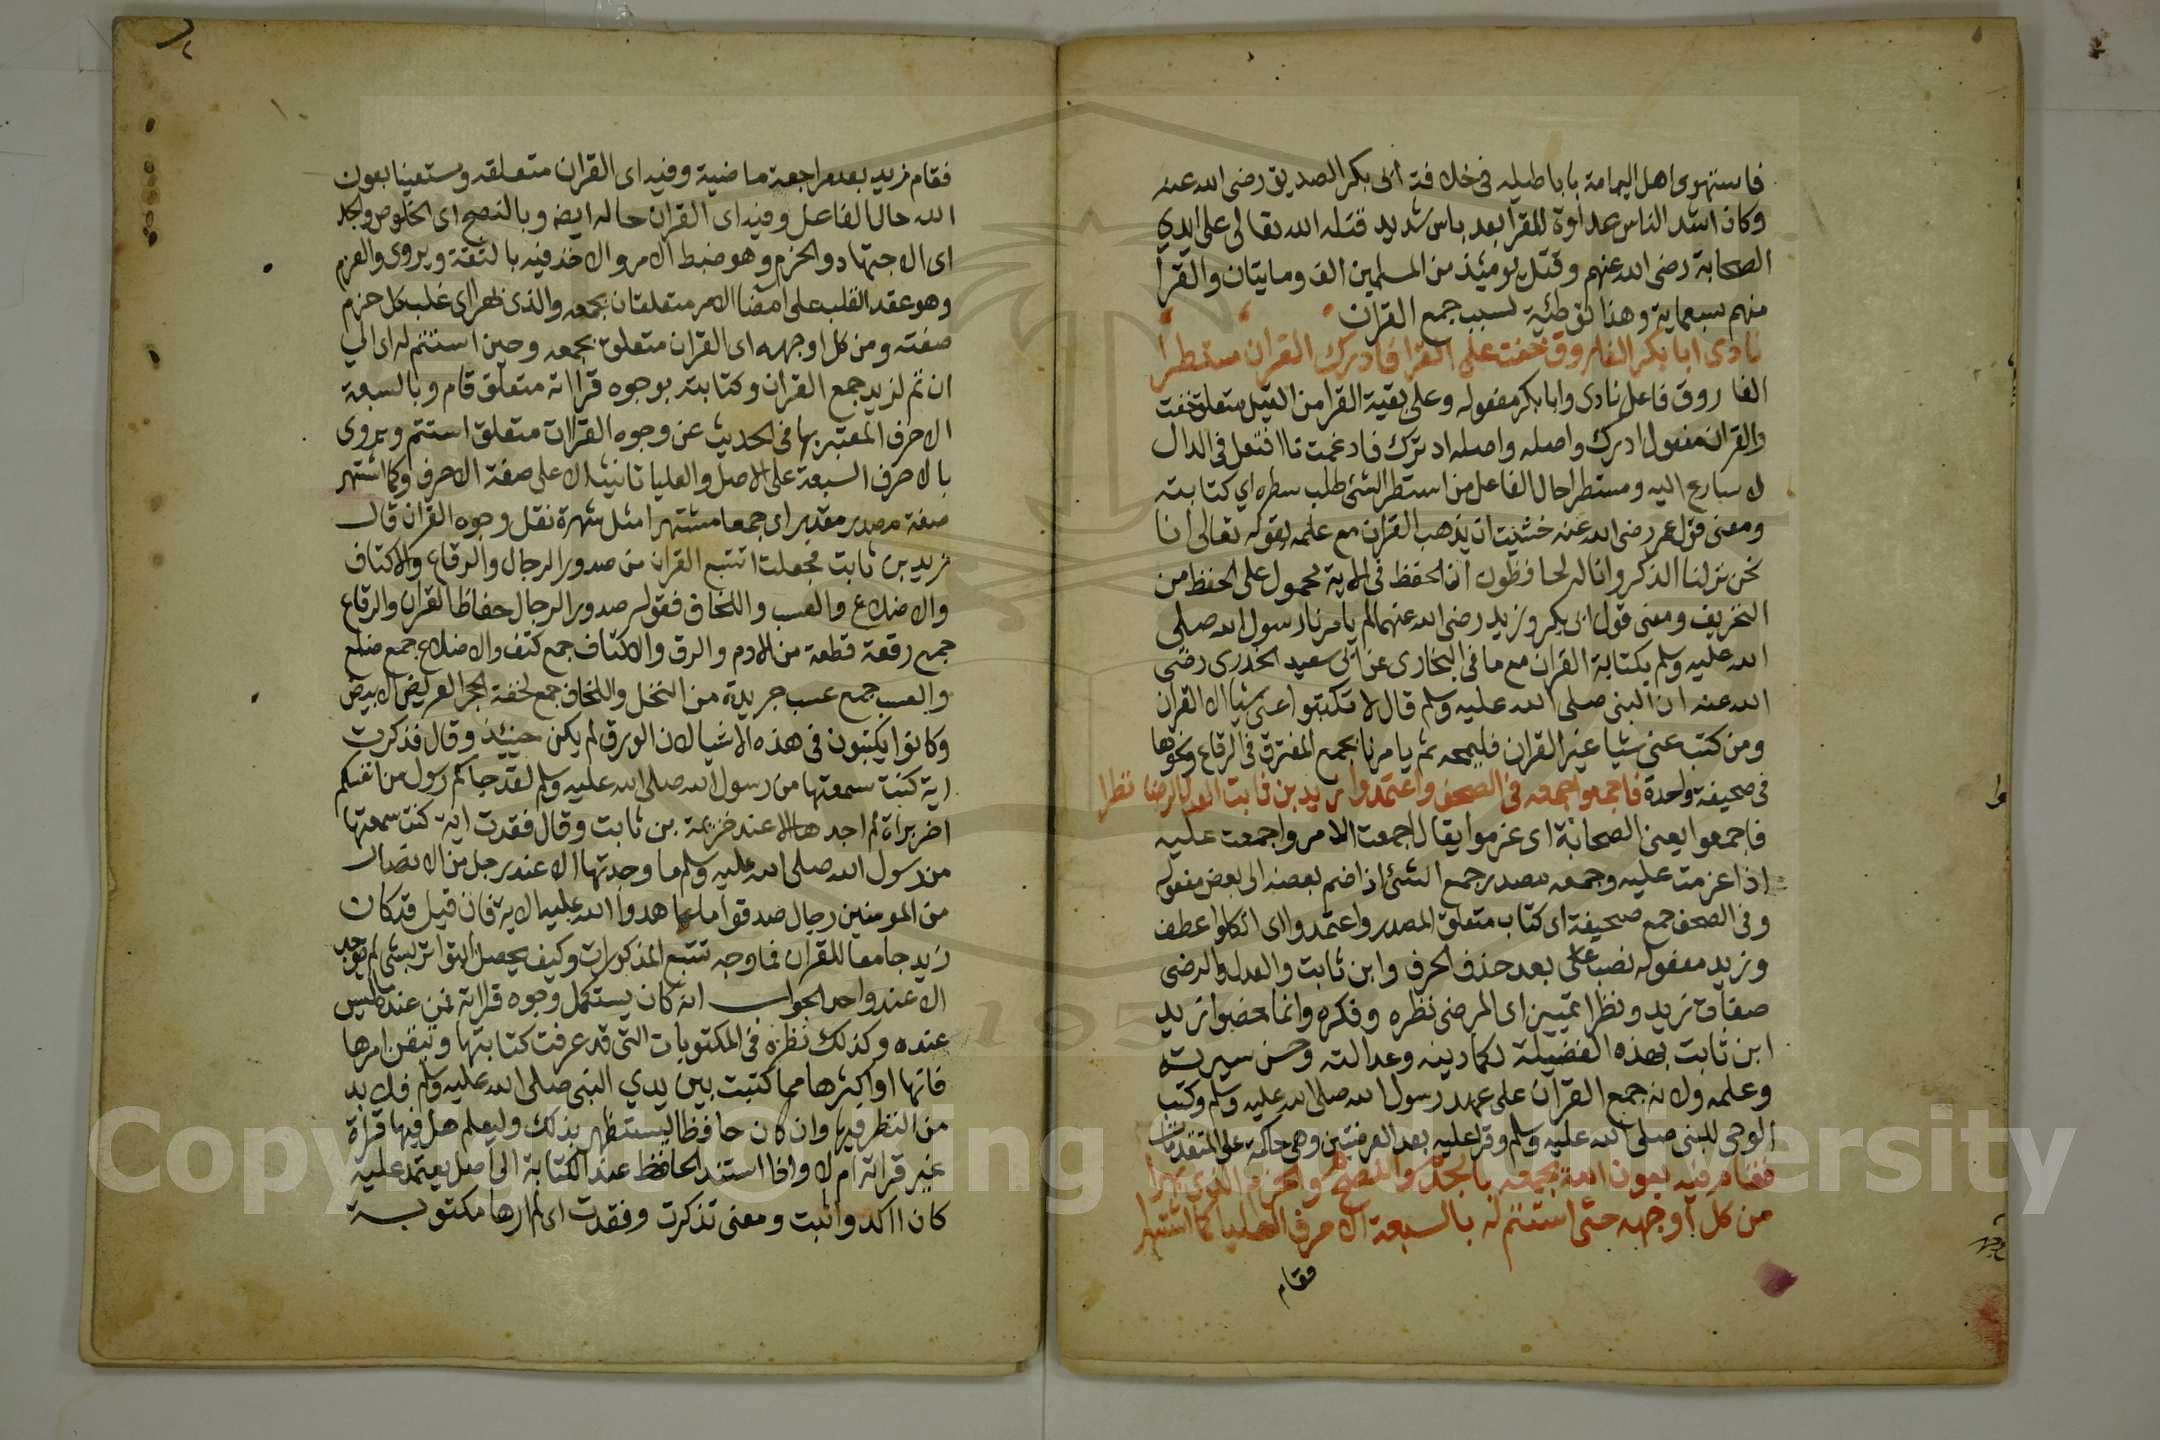 فاستهوى اهل اليمامة باباطيله فى خلافة ابى بكر الصديق رضى الله عنه
وكان اشد الناس عداوة للقرا بعد باس شديد قتله الله تعالى على ايدي
الصحابة رضى الله عنهم وقتل يومئذ من المسلمين الف ومايتان والقرا
منهم سبعماية وهذا توطئية لسبب جمع القران
نادى ابا بكر الفاروق خفت على القرا فادرك القران مستطرا
الفاروق فاعل نادى وابا بكر مفعوله وعلى بقية القرا من القتل متعلق خفت
والقران مفعول ادرك واصله واصله ادترك فادغمت تا افتعل فى الدال
لا سارع اليه ومستطرا حال الفاعل من استطر الشئ طلب سطره اي كتابته
ومعنى قول عمر رضى الله عنه خشيت ان يذهب القران مع علمه لقوله تعالى انا
نحن نزلنا الذكر وانا له لحافظون ان الحفظ فى الاية محمول على الحفظ من
التحريف ومعنى قول ابى بكر وزيد رضى الله عنهما لم يامرنا رسول الله صلى
الله عليه وسلم بكتابة القران مع ما فى البخارى عن ابى سعيد الخدرى رضى
الله عنه ان النبى صلى الله عليه وسلم قال لا تكتبوا عنى شيا الا القران
ومن كتب عنى شيا غير القران فليمحه ثم يامرنا بجمع المفترق فى الرقاع ونحوها
فى صحيفة واحدة فاجمعوا جمعه فى الصحف واعتمدوا زيد بن ثابت العدل الرضا نظرا
فاجمعوا يعنى الصحابة اى عزموا يقال اجمعت الامر واجمعت عليه
اذا عزمت عليه وجمعه مصدر جمع الشئ اذا ضم بعضه الى بعض مفعوله
وفى الصحف جمع صحيفة اى كتاب متعلق المصدر واعتمدوا اى اتكلوا عطف
وزيد مفعوله نصبا على بعد حذف الحرف وابن ثابت والعدل والرضى
صفات زيد ونظرا تمييز اى المرضى نظره وفكره وانما خصوا زيد
ابن ثابت بهذه الفضيلة لكمادينه وعدالته وحسن سيرته
وعلمه ولانه جمع القران على عهد رسول الله صلى الله عليه وسلم وكتب
الوحى للنبى صلى الله عليه وسلم وقرا عليه بعد العرضتين وهى حاكمة على المتقدمات
فقام فيه بعون الله يجمعه بالجد والنصح والحزم الذى بهرا
من كل اوجهه حتى استتم له بالسبعة الاحرف العليا كما اشتهرا
فقام
فقام زيد بعد مراجعة ماضية وفيه اى القران متعلقه ومستعينا بعون
الله حال الفاعل وفيه اى القران حاله ايضا وبالنصح اى الخلوص والجد
اى الاجتهاد والحزم وهو ضبط الامر والاخذ فيه بالثقة ويروى والعزم
وهو عقد القلب على امضا الامر متعلقان بجمعه والذى بهرا اى غلب كل حزم
صفته ومن كل اوجهه اى القران متعلق بجمعه وحين استتم له اى الى
ان تم لزيد جمع القران وكتابته بوجوه قراانه متعلق قام وبالسبعة
الاحرف المعتبر بها فى الحديث عن وجوه القراات متعلق استتم ويروى
بالاحرف السبعة على الاصل والعليا تانيث الاعلى صفة الاحرف وكما اشتهر
صفة مصدر مقدر اى جمعا مشتهرا مثل شهرة نقل وجوه القران قال
زيد بن ثابت فجعلت اتتبع القران من صدور الرجال والرقاع والاكتاف
والاضلاع والعسب واللخاف فقوله صدور الرجال حفاظ القران والرقاع
جمع رقعة قطعة من الادم والرق والاكتاف جمع كتف والاضلاع جمع ضلع
والعسب جمع عسب جريدة من النخل واللخاف جمع لخفة الحجر العريض الابيض
وكانوا يكتبون فى هذه الاشيا لان الورق لم يكن حينئذ وقال فذكرت
اية كنت سمعتها من رسول الله صلى الله عليه وسلم لقد جاكم رسول من انفسكم
اخر براة لم اجدها الا عند خزيمة بن ثابت وقال فقدت اية كنت سمعتها
من رسول الله صلى الله عليه وسلم ما وجدتها الا عند رجل من الانصار
من المومنين رجال صدقوا ما عاهدوا الله عليه الاية فان قيل قد كان
زيد جامعا للقران فما وجه تتبع المذكورات وكيف يحصل التواتر بشى لم يوجد
الا عند واحد الجواب انه كان يستكمل وجوه قرااته ممن عنده ما ليس
عنده وكذلك نظره فى المكتوبات التى قد عرفت كتابتها وتيقن امرها
فانها او اكثرها مما كتبت بين يدي النبى صلى الله عليه وسلم فلا بد
من النظر فيها وان كان حافظا ليستظهر بذلك وليعلم هل فيها قراة
غير قراته ام لا واذا استند الحافظ عند الكتابة الى اصل يعتمد عليه
كان ااكد واثبت ومعنى تذكرت وفقدت اى لم ارها مكتوبة
Copyright © King University